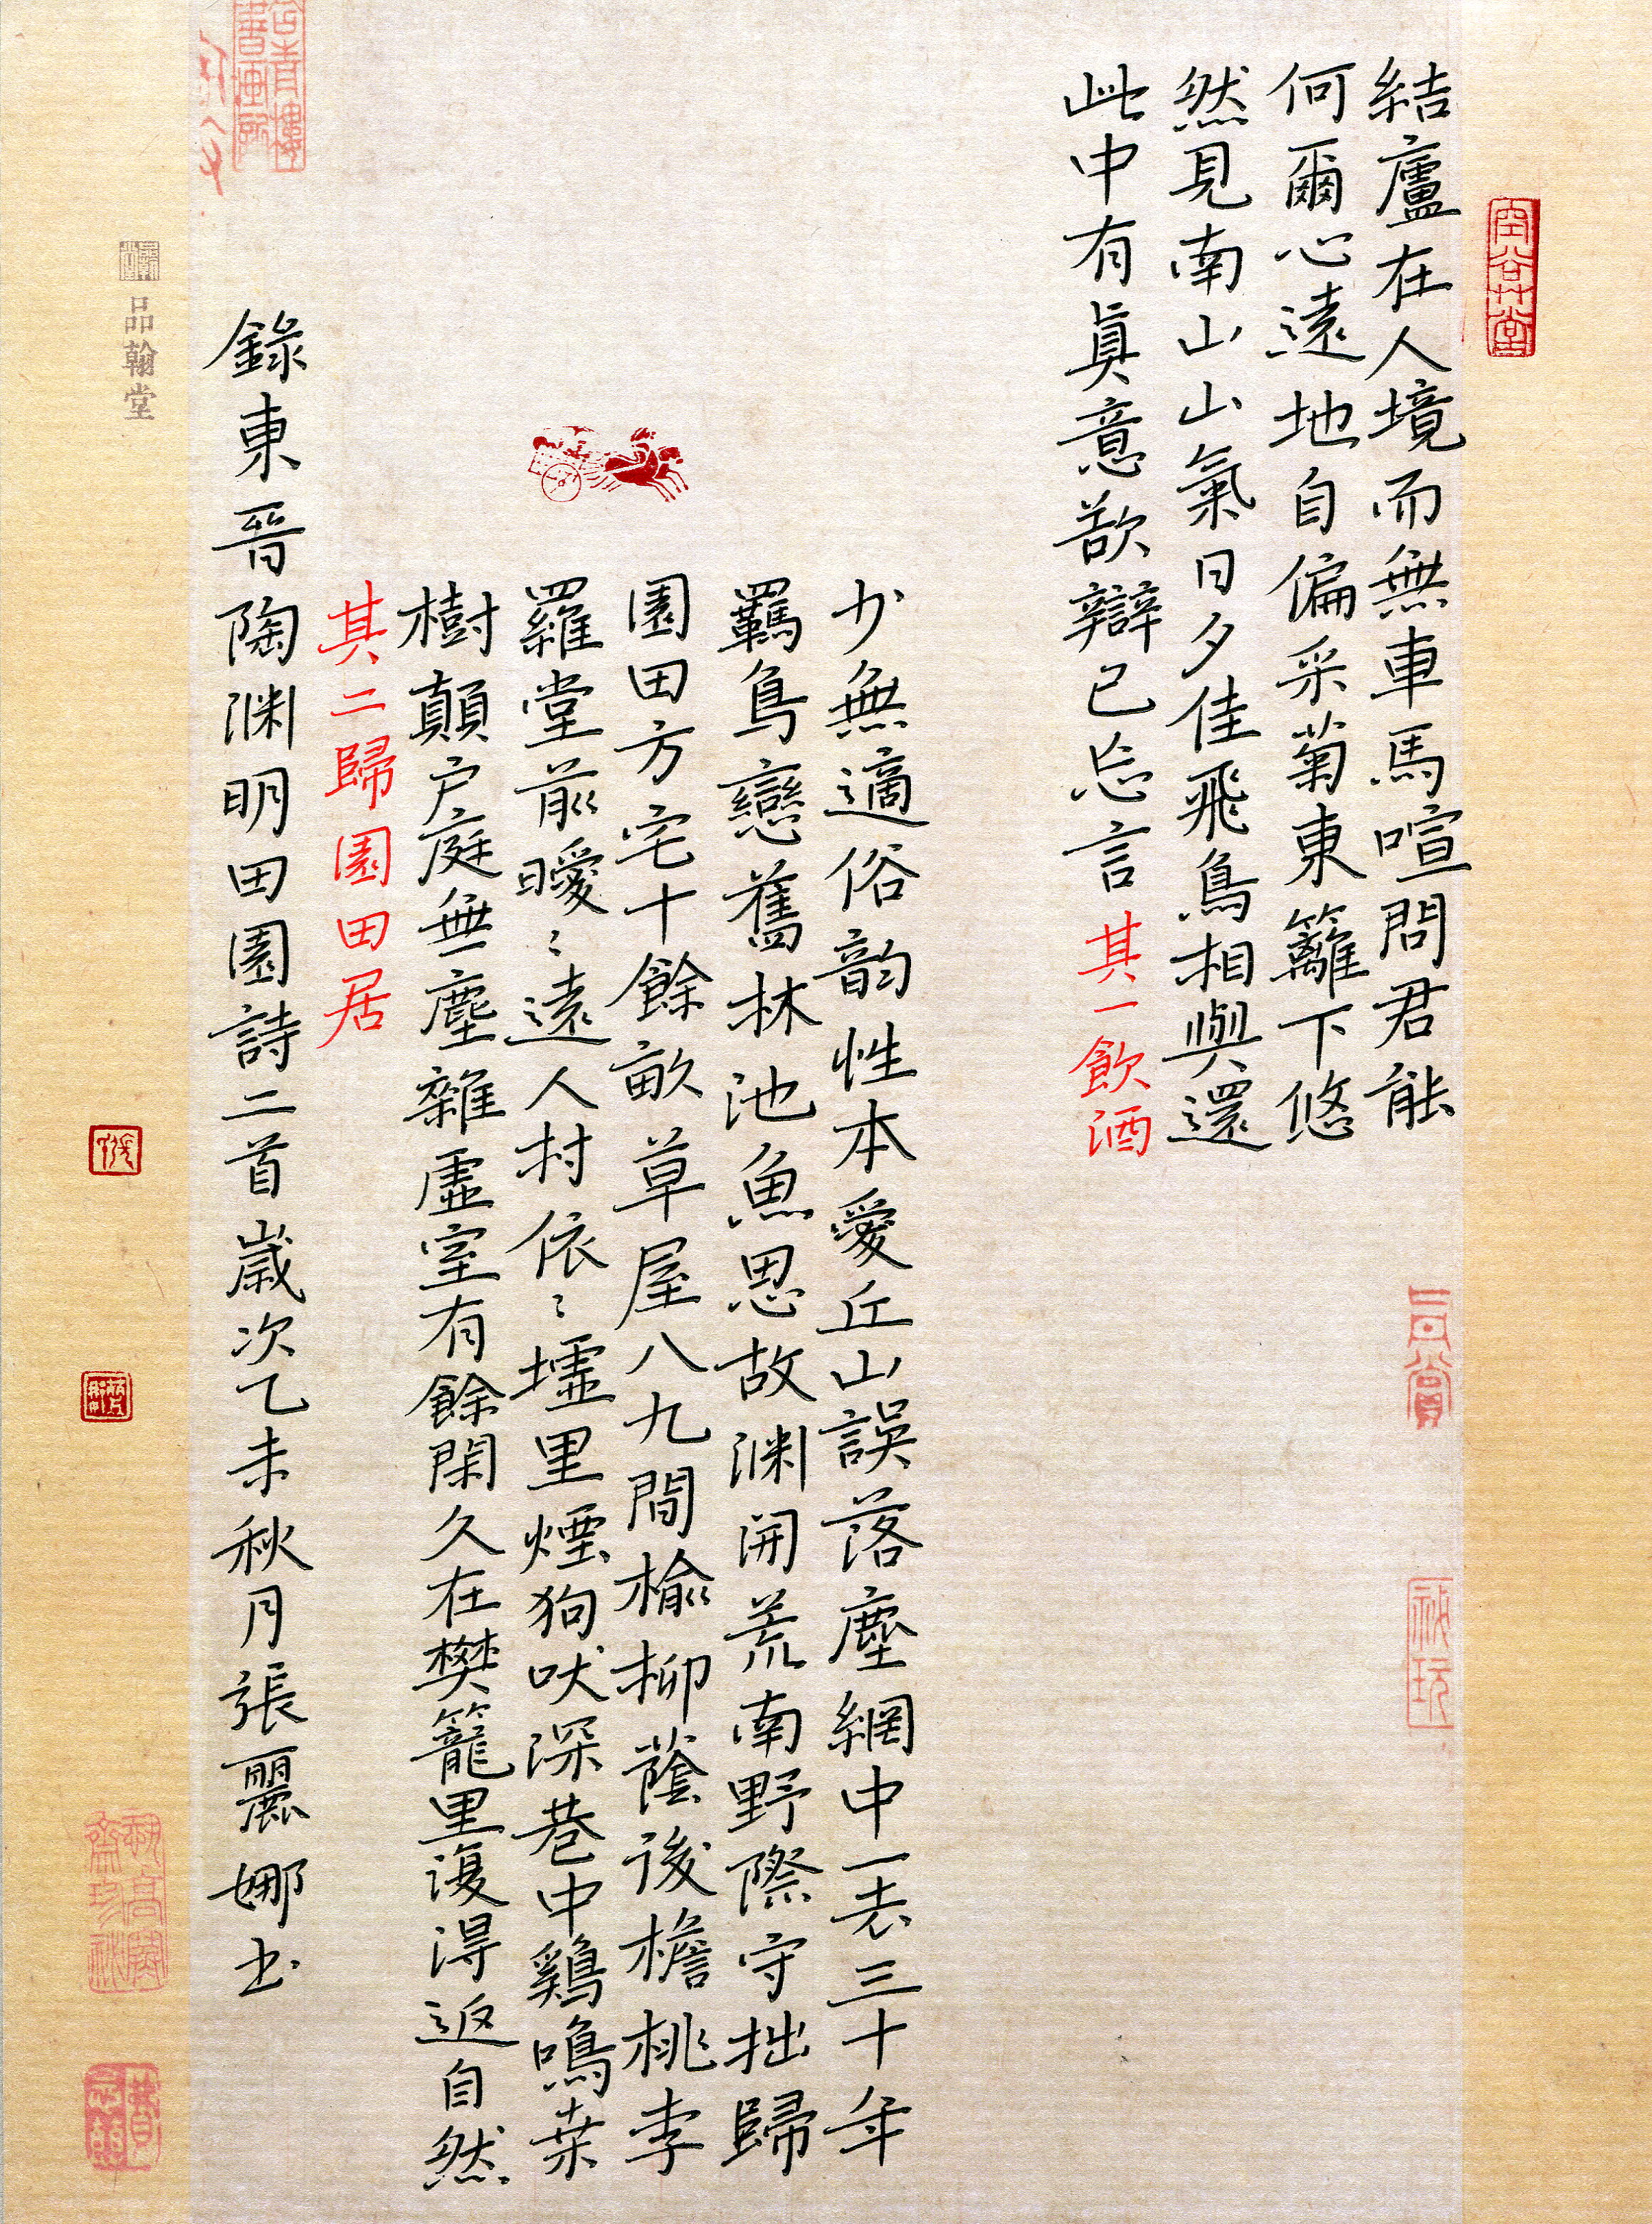 結廬在人境而無車馬喧問君能
何爾心遠地自偏采菊東籬下悠
然見南山山氣日夕佳飛鳥相與還
此中有真意欲辯已忘言其一飲酒
少無適俗韵性本愛丘山誤落塵網中一去三十年
羈鳥戀舊林池魚思故渊開荒南野際守拙歸
園田方宅十餘畝草屋八九間榆柳蔭後檐桃李
羅堂前曖〻遠人村依〻墟里煙狗吠深巷中鷄鳴桒
樹顛户庭無塵雜虚室有餘閑久在樊籠里復得返自然
其二歸園田居
錄東晉陶渊明田園詩二首歲次乙未秋月張麗娜书
品翰堂
空谷堂